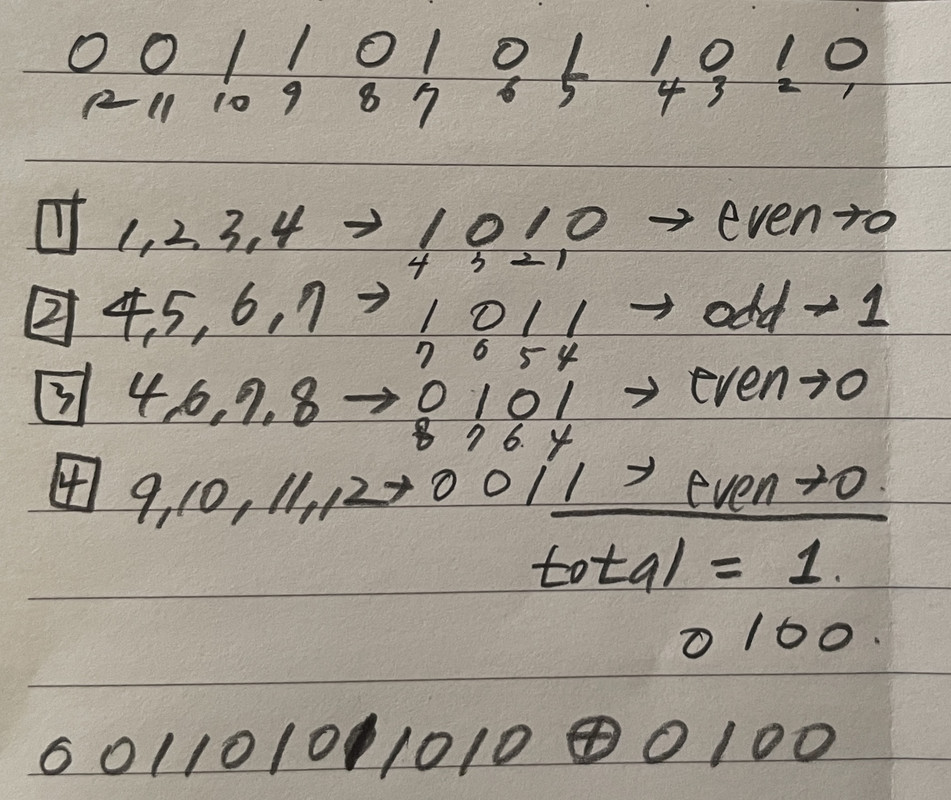 0 0 1 1 0 1 0 1 1 0 1 0
12 11 10 9 8 7 6 5 4 3 2 1
1 1,2,3,4 → 1 0 1 0 → even→0
4 3 2 1
2 4,5,6,7 → 1 0 1 1 → odd → 1
7 6 5 4
3 4,6,7,8 → 0 1 0 1 → even→0
8 7 6 4
4 9,10,11,12→ 0 0 1 1 → even→0.
total = 1.
0 1 0 0.
0 0 1 1 0 1 0 1 1 0 1 0 ⊕ 0 1 0 0